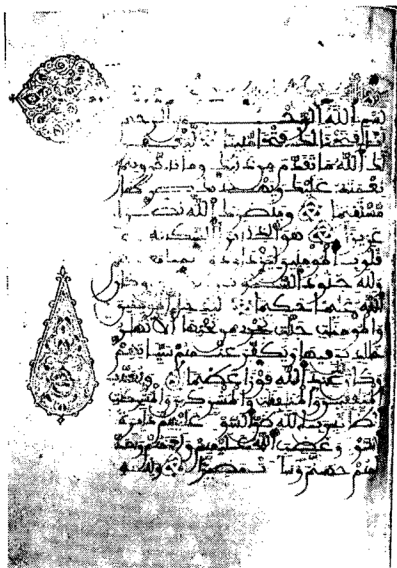 بسم الله الرحمن الرحيم
إنا فتحنا لك فتحا مبينا ليغفر
لك الله ما تقدم من ذنبك وما تأخر ويتم
نعمته عليك ويهديك صراطا
مستقيما وينصرك الله نصرا
عزيزا هو الذي أنزل السكينة في
قلوب المؤمنين ليزدادوا إيمنا مع
ولله جنود السموت وكان
الله عليما حكيما ليدخل المؤمنين
والمؤمنت جنت تجري من تحتها الأنهر
خلدين فيها ويكفر عنهم سيئاتهم
وكان عند الله فوزا عظيما ويعذب
المنفقين والمنفقت والمشركين والمشركت
الظانين بالله ظن السوء عليهم دائرة
السوء وغضب الله عليهم ولعنهم وأعد
لهم جهنم وساءت مصيرا ولله